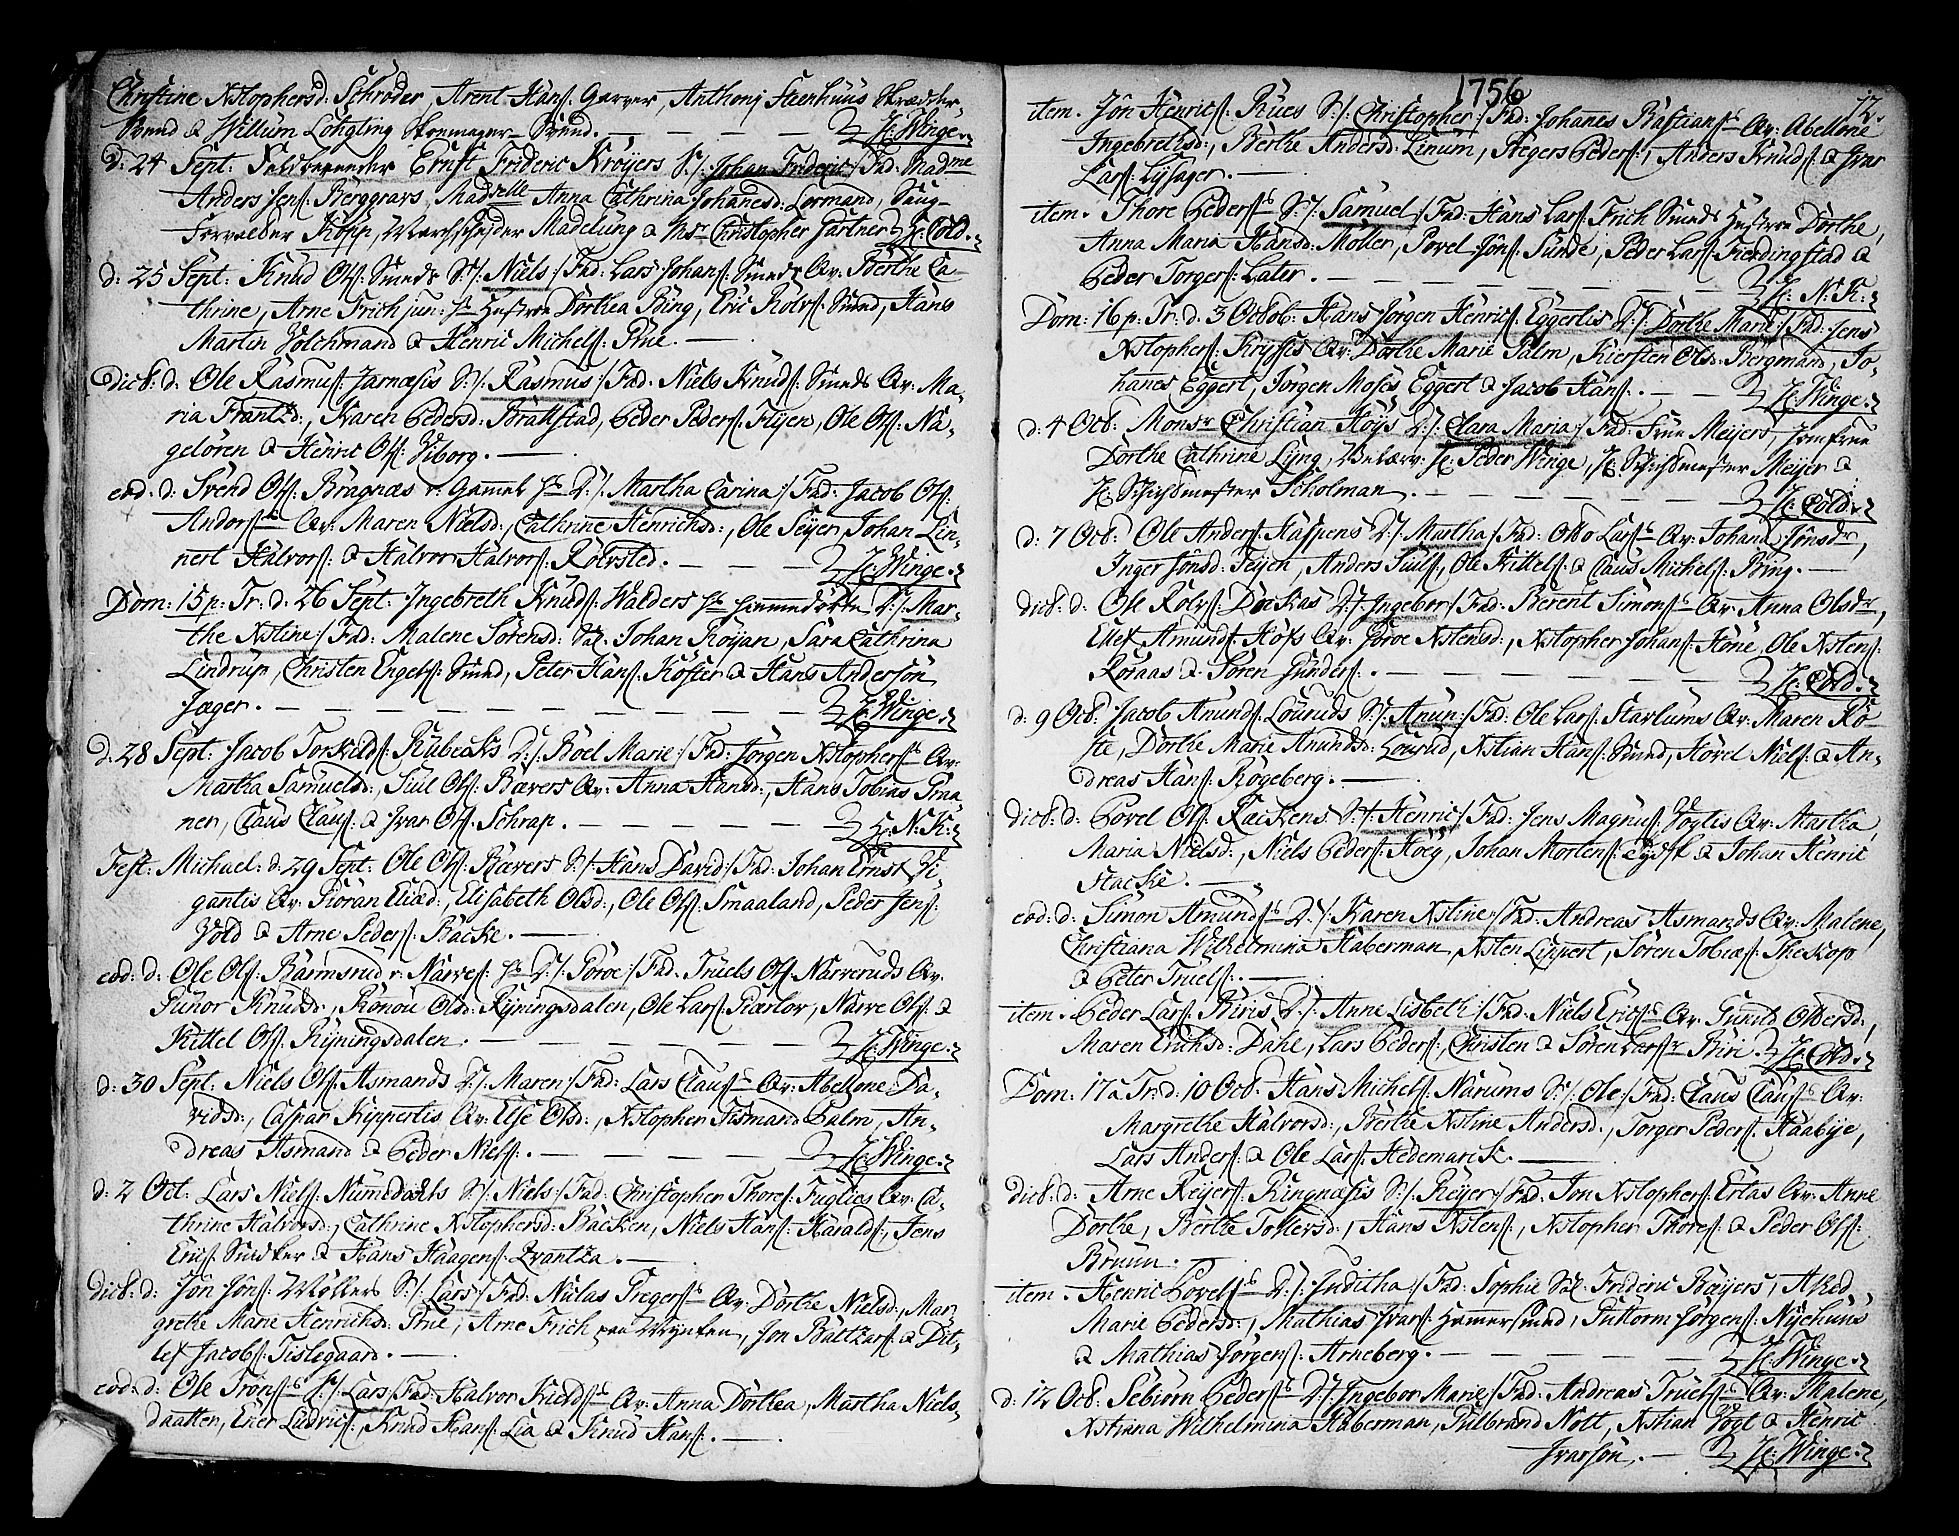 Christine Xstophersd: Schrøder, Arent Hans: Garver, Anthonj Steenhuus Skrædder-
Svend & Willum Lohgting Skomager-Svend. — — — H: Winge.
d: 24 Sept: Ernst Frideric Krøyers S:/: Johan Frideric :/ Fad: Madme
Anders Jens: Berggravs, Madselle Anna Cathrina Johanesd: Lormand,
Forvalter Kopp, Madelung & Msr Christopher Gartner H: Cold.
d: 25 Sept: Knud Ols: Smeds S:/: Niels :/ Fad: Lars Johans: Smeds Qv: Berthe Ca-
thrine, Arne Frich jun: Hustrue Dorthea Bing, Eric Rolvs: Smed, Hans
Martin Volchmand & Henric Michels: Prue. —
dic8: d: Ole Rasmus: Jarnæsis S:/: Rasmus :/ Fad: Niels Knuds: Smeds Qv: Ma-
ria Frantzd:, Karen Pedersd: Brattstad, Peder Peders: Flijen, Ole Ols: Na-
geløren & Henric Ols: Viborg. —
eod: d: Svend Ols: Bragnæs v: Gamel D:/: Martha Carina :/ Fad: Jacob Ols:
Qv: Maren Nielsd:, Cathrine Henrichsd:, Ole Seyer, Johan Lin-
nert Halvors: & Halvor Halvors: Rolvsted. — — — H: Winge.
Dom: 15 p: Tr: d: 26 Sept: Ingebreth Knuds: Walders D:/: Mar-
the Xstine :/ Fad: Malene Sørensd: Sal: Johan Røyan, Sara Cathrina
Lindrup, Christen Engels: Smed, Peter Hans: Koster & Hans Andersøn
Jæger. — — — H: Winge.
d: 28 Sept: Jacob Torkelds: Rubecks D:/: Boel Marie :/ Fad: Jørgen Xstophers: Qv:
Martha Samuelsd:, Juul Ols: Bævers Qv: Anna Hansd:, Hans Tobias Praa-
ner, Claus Claus: & Jvar Ols: Schrap. — — — H: N: K:
Fest: Michael: d: 29 Sept: Ole Ols: Bævers S:/: Hans David :/ Fad: Johan Ernst Gi-
gantis Qv: Giøran Eliæd:, Elisabeth Olsd:, Ole Ols: Smaaland, Peder Jens:
Vold & Arne Peders: Backe. —
eod: d: Ole Ols: Barmsrud v: Narves: D:/: Goroe :/ Fad: Truels Ols: Narveruds Qv:
Gunor Knudsd:, Ronou Olsd: Ryningsdalen, Ole Lars: Hærlov, Narve Ols: &
Kittel Ols: Ryningsdalen. — — — H: Winge.
d: 30 Sept: Niels Ols: Asmands D:/: Maren :/ Fad: Lars Claus: Qv: Abellone Da-
vidsd:, Caspar Kippertis Qv: Else Olsd:, Xstopher Tismand Palm, An-
dreas Asmand & Peder Niels:. — — — H: Winge.
d: 2 Oct: Lars Niels: Numedahls S:/: Niels :/ Fad: Christopher Thores: Fuglies Qv: Ca-
thrine Halvorsd:, Cathrine Xstophersd: Backen, Niels Hans: Haralds:, Jens
Erics: Snedker & Hans Haagens: Qvantza. —
dic8: d: Jon Jons: Møllers S:/: Lars :/ Fad: Niclas Gregers: Qv: Dorthe Nielsd:, Mar-
grethe Marie Henrichsd: Prue, Arne Frich paa Mynten, Jon Baltzars: & Dit-
lef Jacobs: Tislegaard. —
eod: d: Ole Trons: S:/: Lars :/ Fad: Halvor Kields: Qv: Anna Dorthea, Martha Niels-
daatter, Ener Ludrics:, Knud Hans: Lia & Knud Hans:. —
1756
12.
item. Jon Henrics: Rues S:/: Christopher :/ Fad: Johanes Bastians: Qv: Abellone
Ingebrethsd:, Berthe Andersd: Linum, Reger Peders:, Anders Knuds: & Jvar
Lars: Lysager. —
item. Thore Peders: S:/: Samuel :/ Fad: Hans Lars: Frich Smeds Hustrue Dorthe,
Anna Maria Hansd: Møller, Povel Jons: Sunde, Peder Lars: Fierdingstad &
Peder Torgers: Later. — — — H: N: K:
Dom: 16 p: Tr: d: 3 Octob: Hans Jørgen Henrics: Eggertis D:/: Dorthe Marie :/ Fad: Jens
Xstophers: Kryssis Qv: Dorthe Marie Palm, Kiersten Olsd: Bergmand, Jo-
hanes Eggert, Jørgen Moses Eggert & Jacob Hans:. — — H: Winge.
d: 4 Oc8: Monsr Christian Høys D:/: Clara Maria :/ Fad: Frue Meijers, Jomfrue
Dorthe Cathrine Ljng, H: Peder Winge, H: Schichtmester Meijer &
H: Schichtmester Scholman. — — — H: Cold.
d: 7 Oc8: Ole Anders: Haspens D:/: Martha :/ Fad: Otto Lars: Qv: Johana Jonsdr,
Inger Jonsd: Teijen, Anders Juuls:, Ole Kittels: & Claus Michels: Bring. —
dic8: d: Ole Rolvs: Dockas D:/: Ingebor :/ Fad: Berent Simons: Qv: Anna Olsdr,
Ellef Amunds: Hofs Qv: Goroe Xstensd:, Xstopher Johans: Hone, Ole Xstens:
Roraas & Søren Gunders:. — — — H: Cold.
d: 9 Oc8: Jacob Amunds: Louruds S:/: Anun :/ Fad: Ole Lars: Starlums Qv: Maren Ro-
ste, Dorthe Marie Anundsd: Lourud, Xstian Hans: Smed, Hovel Niels: & An-
dreas Hans: Rogeberg. —
dic8: d: Povel Ols: Rackens S:/: Henric :/ Fad: Jens Magnus: Vogtis Qv: Martha
Maria Nielsd:, Niels Peders: Hoeg, Johan Mortens: Tydsk & Johan Henric
Stacke. —
eod: d: Simon Amunds: D:/: Karen Xstine :/ Fad: Andreas Asmands Qv: Malene,
Christiana Wilhelmina Haberman, Xsten Lippert, Søren Tobiæs: Theskop
& Peter Truels:. —
item. Peder Lars: Biris D:/: Anne Lisbeth :/ Fad: Niels Erics: Qv: Gunild Olversd:,
Maren Erichsd: Dahl, Lars Peders:, Christen & Søren Lars: Biri. H: Cold.
Dom: 17 a Tr: d: 10 Oc8: Hans Michels: Narums S:/: Ole :/ Fad: Claus Claus: Qv:
Margrethe Halvorsd:, Berthe Xstine Andersd:, Torger Peders: Haabye,
Lars Anders: & Ole Lars: Hedemarck. —
dic8: d: Arne Reyers: Ringnæsis S:/: Reyer :/ Fad: Jon Xstophers: Ertas Qv: Anne
Dorthe, Berthe Tollersd:, Hans Xstens:, Xstopher Thores: & Peder Ols:
Bruun. —
item. Henric Povels: D:/: Juditha :/ Fad: Sophie Sal: Frideric Bæyers,
Marie Pedersd:, Mathias Jvars: Hamersmed, Guttorm Jørgens: Nyehuus
& Mathias Jørgens: Arneberg. — — — H: Winge.
d: 12 Oc8: Sebiørn Peders: D:/: Ingebor Marie :/ Fad: Andreas Truels: Qv: Malene,
Xstiana Wilhelmina Haberman, Gulbrand Nott, Xstian Vogt & Henric
Jvarsøn. — H: Winge.